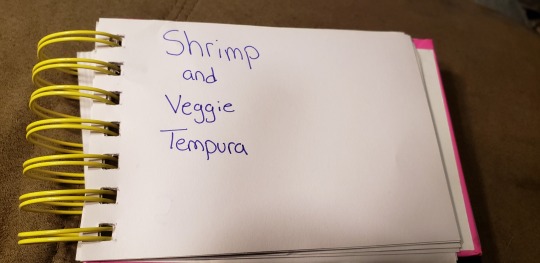 Shrimp
and
Veggie
Tempura